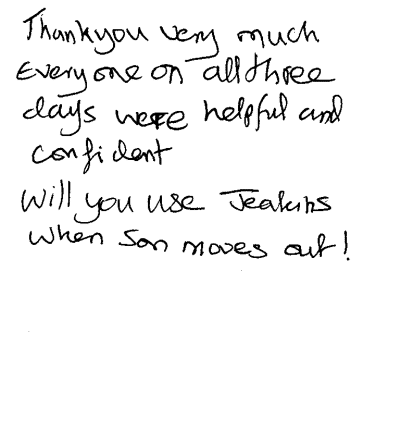 Thankyou very much
Everyone on all three
days were helpful and
confident
Will you use Jeakins
when Son moves out!